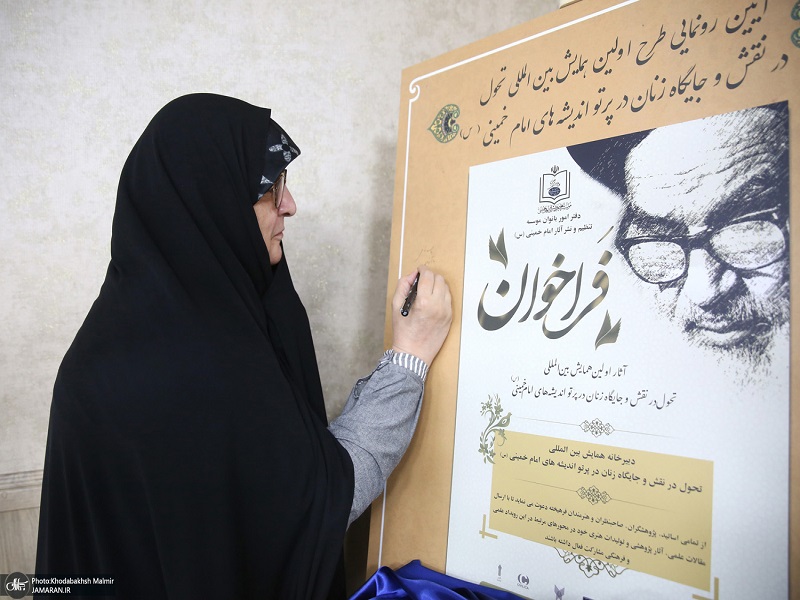 آیین رونمایی طرح اولین همایش بین المللی تحول
در نقش و جایگاه زنان در پرتو اندیشه های امام خمینی (س)
دفتر امور بانوان موسسه
تنظیم و نشر آثار امام خمینی (س)
فراخوان
آثار اولین همایش بین‌المللی
تحول در نقش و جایگاه زنان در پرتو اندیشه‌های امام خمینی (س)
دبیرخانه همایش بین المللی
تحول در نقش و جایگاه زنان در پرتو اندیشه های امام خمینی (س)
از تمامی اساتید، پژوهشگران، صاحبنظران و هنرمندان فرهیخته دعوت می نماید تا با ارسال
مقالات علمی، آثار پژوهشی و تولیدات هنری خود در محورهای مرتبط در این رویداد علمی
و فرهنگی مشارکت فعال داشته باشند
Photo:Khodabakhsh Malmir
JAMARAN.IR